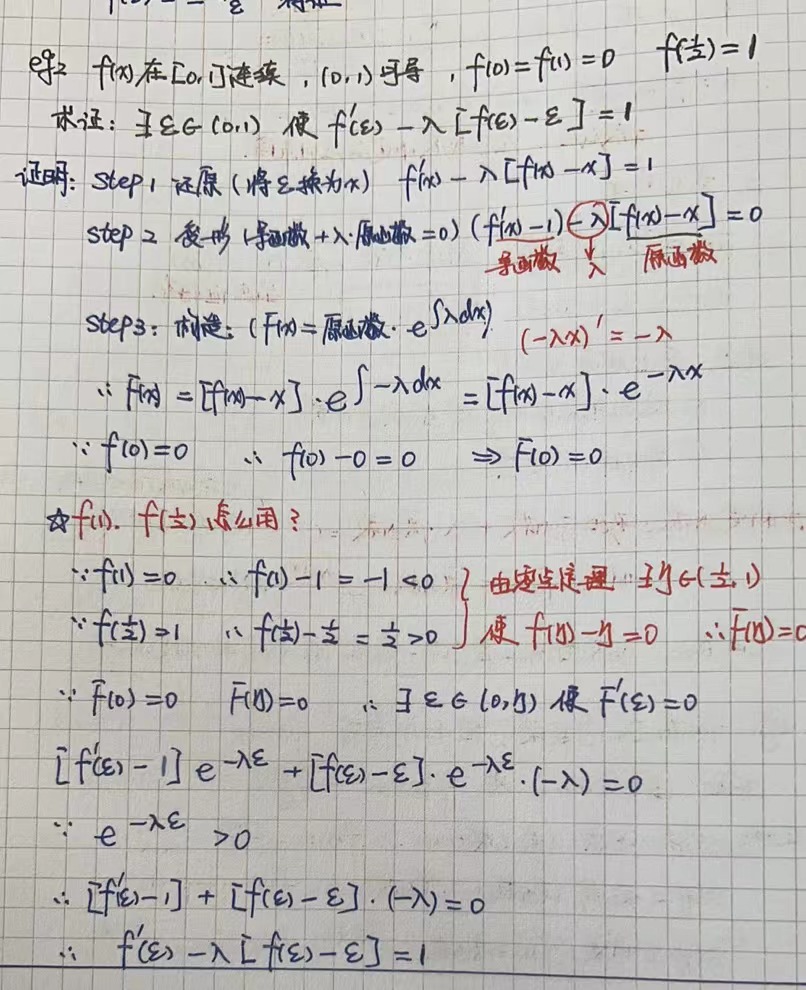 eg2 f(x)在[0,1]连续,(0,1)可导,f(0)=f(1)=0 f(1/2)=1
求证:∃ε∈(0,1) 使 f'(ε)-λ[f(ε)-ε]=1
证明:step1 还原(将ε换为x) f'(x)-λ[f(x)-x]=1
step2 变形(导函数+λ·原函数=0) (f'(x)-1)-λ[f(x)-x]=0
导函数 λ 原函数
step3:构造:(F(x)=原函数·e^∫λdx) (-λx)'=-λ
∴ F(x)=[f(x)-x]·e^∫-λdx=[f(x)-x]·e^-λx
∵ f(0)=0 ∴ f(0)-0=0 ⇒ F(0)=0
☆f(1).f(1/2)怎么用?
∵f(1)=0 ∴f(1)-1=-1<0 } 由零点定理 ∃η∈(1/2,1)
∵f(1/2)=1 ∴f(1/2)-1/2=1/2>0 } 使 f(η)-η=0 ∴F(η)=0
∵ F(0)=0 F(η)=0 ∴ ∃ε∈(0,η) 使 F'(ε)=0
[f'(ε)-1]e^-λε+[f(ε)-ε]·e^-λε·(-λ)=0
∵ e^-λε >0
∴ [f'(ε)-1]+[f(ε)-ε]·(-λ)=0
∴ f'(ε)-λ[f(ε)-ε]=1